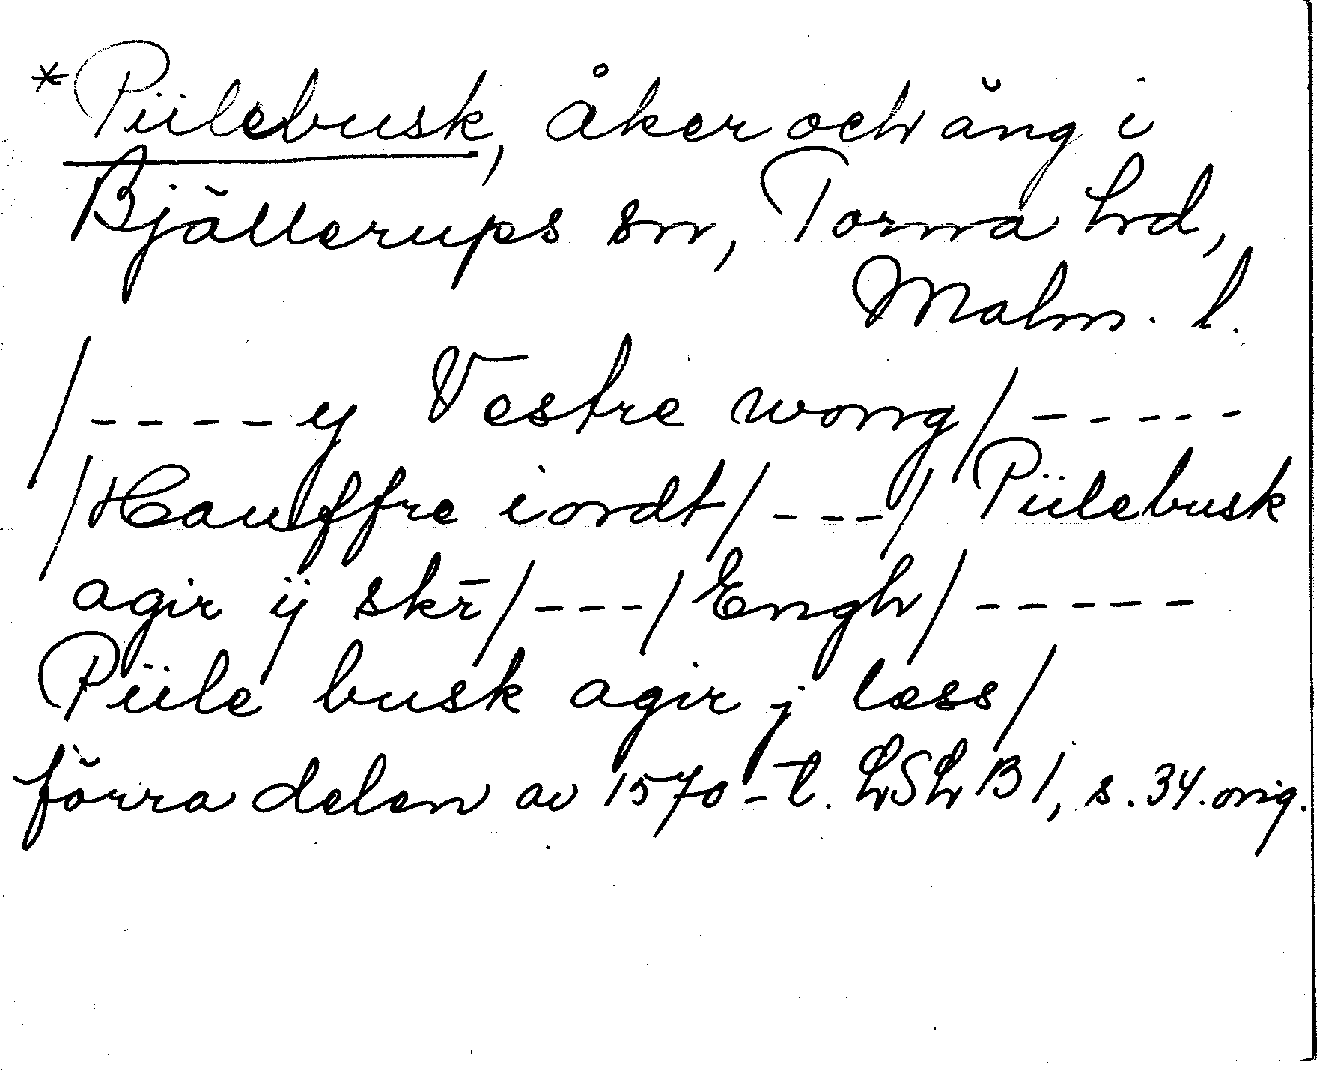 *Piilebusk, åker och äng i
Bjällerups sn, Torna hd,
Malm. l.
/----y Vestre wong/-----
/Hauffre iordt/---/ Piilebusk
agir ij skr̄/---/Engh/-----
Piile busk agir j læss/
förra delen av 1570-t. LSLB1, s. 34. orig.